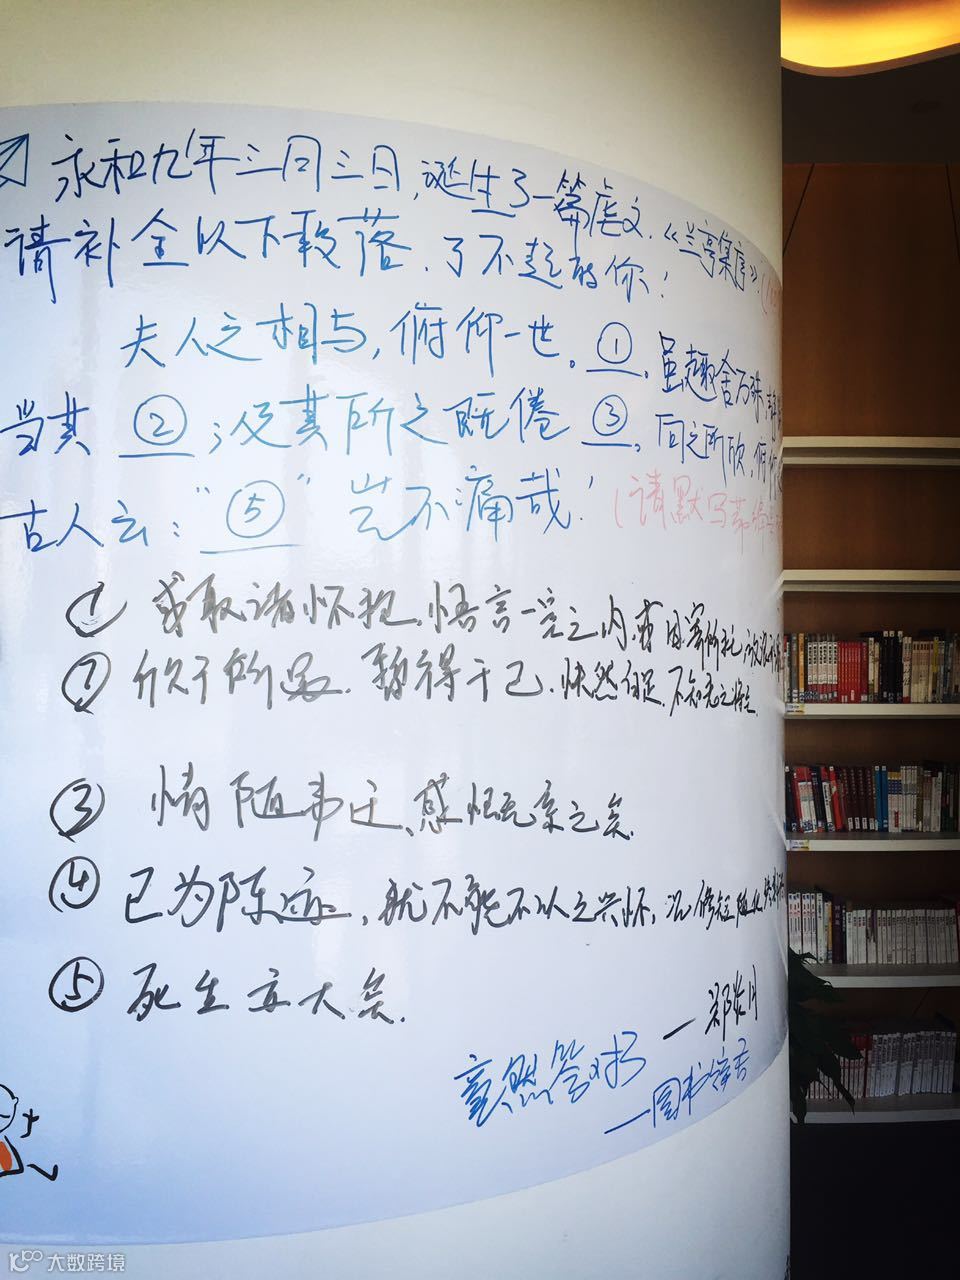 永和九年三月三日,诞生了一篇序文.《兰亭集序》.
请补全以下段落.了不起的你!
夫人之相与,俯仰一世。①。虽趣舍万殊,静
当其②;及其所之既倦③,向之所欣,俯仰
古人云:“⑤”岂不痛哉!(请默写
① 或取诸怀抱.悟言一室之内,或因寄所托,放浪
② 欣于所遇.暂得于己.快然自足.不知老之将至.
③ 情随事迁、感慨系之矣.
④ 已为陈迹,犹不能不以之兴怀,况修短随化,
⑤ 死生亦大矣.
—郑
竟然答对了
—图书馆
大数跨境